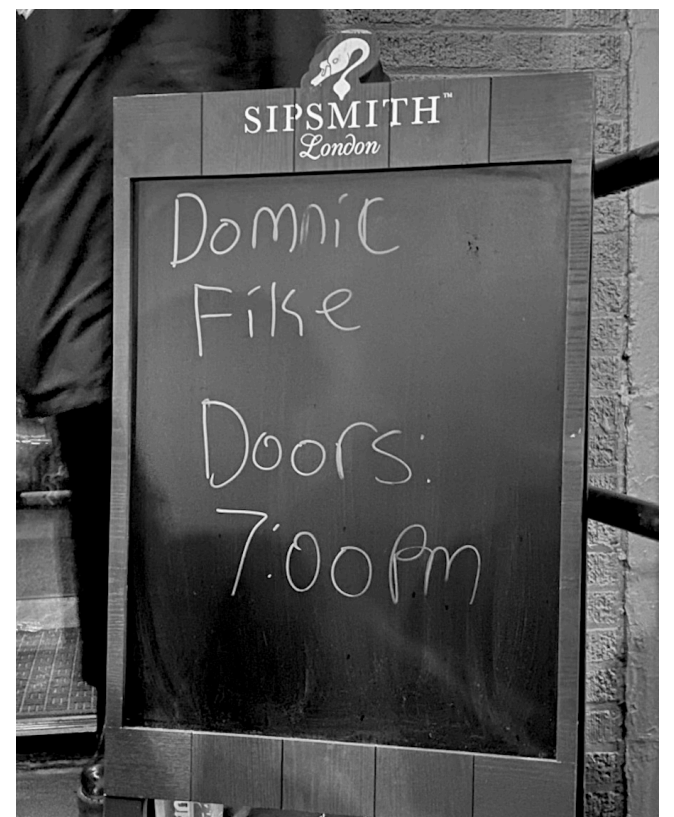 SIPSMITH™
London
Domnic
Fike
Doors:
7:00pm